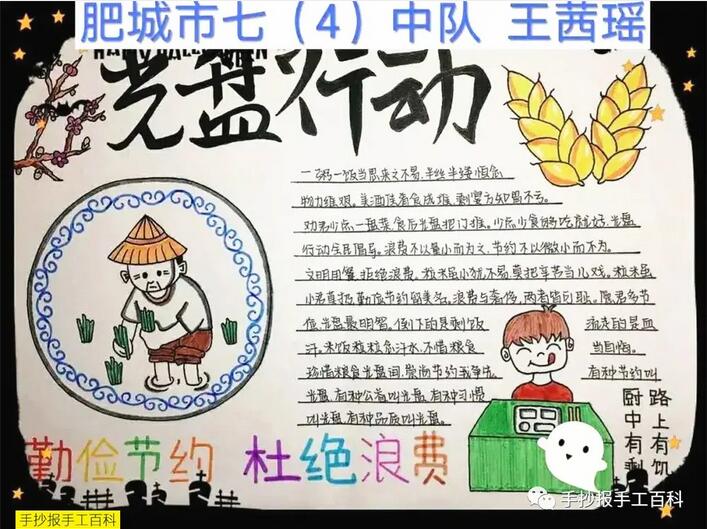 肥城市七（4）中队 王茜瑶
HAPPY HALLOWEEN
光盘行动
一粥一饭当思来之不易,半丝半缕恒念
物力维艰。美酒佳肴食成堆,剩
劝君少点一盘菜,食后光盘把门推。少点少食够吃就好,光盘
行动全民倡导。浪费不以量小而为之,节约不以微小而不为。
文明用餐,拒绝浪费。粒米虽小犹不易,莫把辛苦当儿戏。粒米虽
小君莫扔,勤俭节约留美名。浪费与奢侈,两者皆可耻。愿君多节
俭,光盘最明智。倒下的是剩饭
流走的是血
汗。米饭粒粒念汗水,不惜粮食
当自悔。
珍惜粮食光盘间,崇尚节约我争先
有种节约叫
光盘,有种公益叫光盘,有种习惯
叫光盘,有种品质叫光盘。
厨中有剩
路上有饥
勤俭节约 杜绝浪费
手抄报手工百科
手抄报手工百科